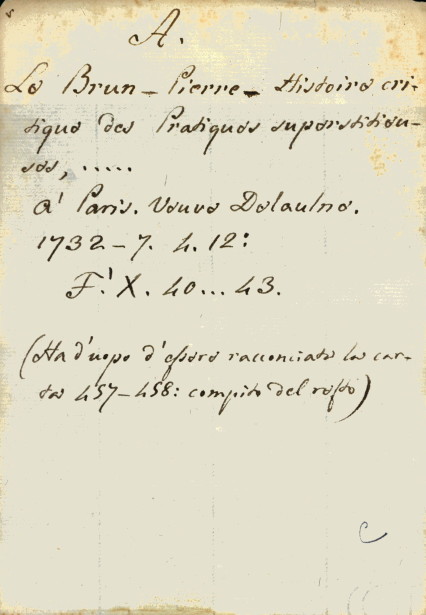 A.
Le Brun - Pierre - Histoire cri-
tique des Pratiques superstitieu-
ses, .....
à Paris. Veuve Delaulne.
1732 - 7. 4. 12:
F.' X. 40 ... 43.
(Ha d'uopo d'essere racconciata la car-
ta 457-458: compito del resto)
C